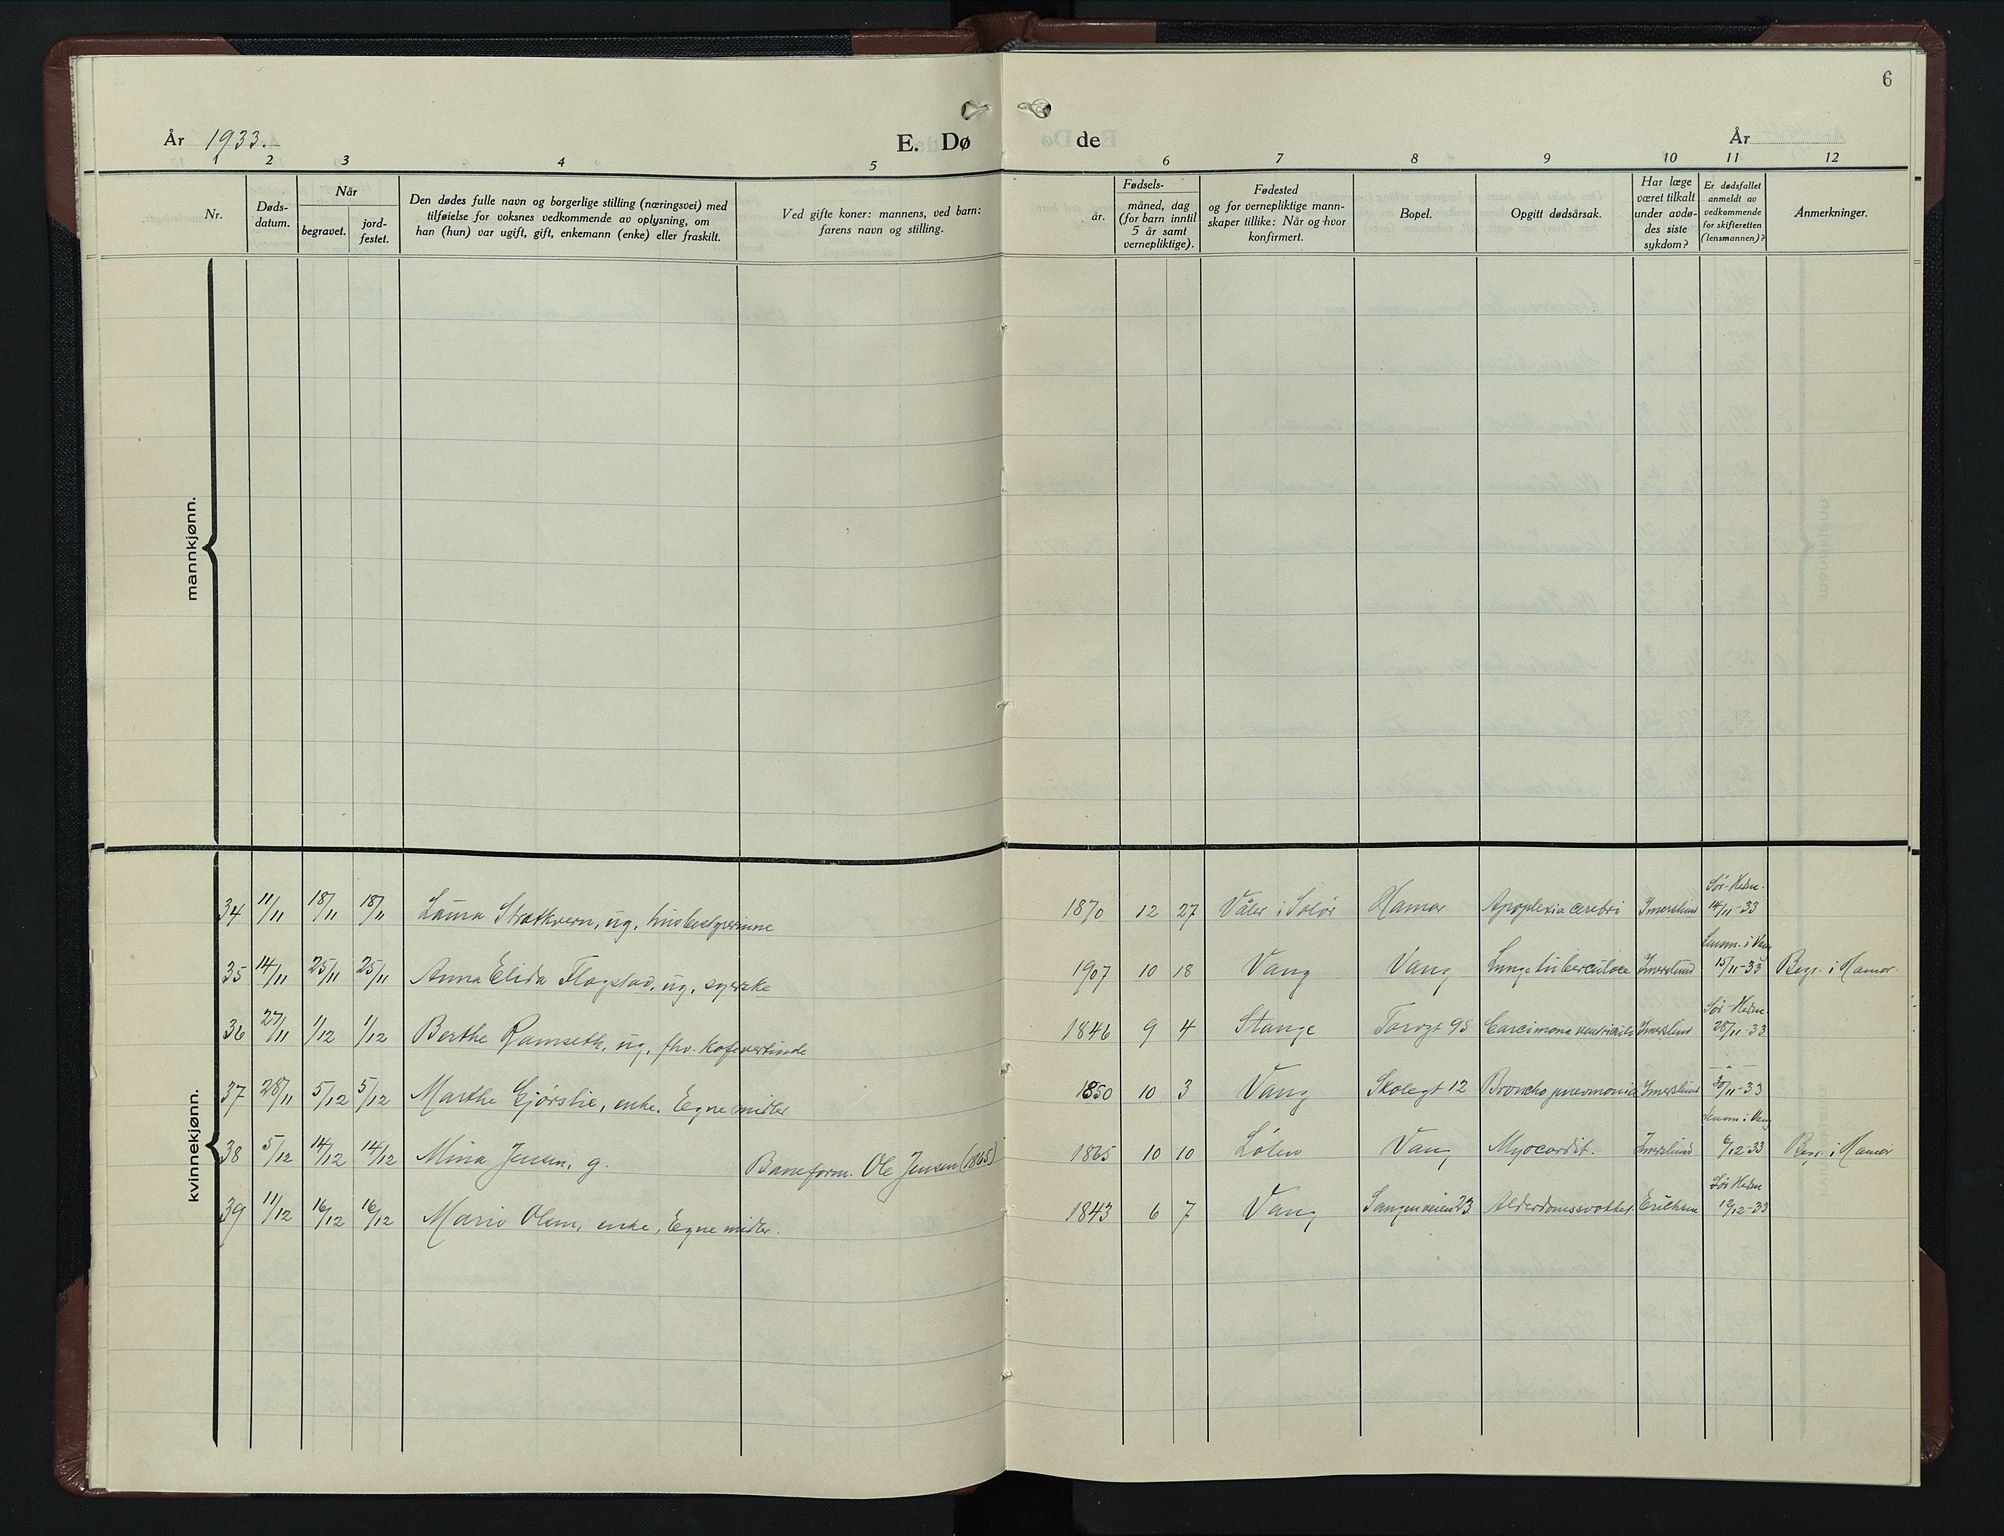 6
År 1933.
E. Dø de
År
1 2 3 4 5 6 7 8 9 10 11 12
Nr.
Døds-
datum.
Når
begravet.
jord-
festet.
Den dødes fulle navn og borgerlige stilling (næringsvei) med
tilføielse for voksnes vedkommende av oplysning, om
han (hun) var ugift, gift, enkemann (enke) eller fraskilt.
Ved gifte koner: mannens, ved barn:
farens navn og stilling.
Fødsels-
år.
måned, dag
(for barn inntil
5 år samt
vernepliktige).
Fødested
og for vernepliktige mann-
skaper tillike: Når og hvor
konfirmert.
Bopel.
Opgitt dødsårsak.
Har læge
været tilkalt
under avdø-
des siste
sykdom?
Er dødsfallet
anmeldt av
vedkommende
for skifteretten
(lensmannen)?
Anmerkninger.
mannkjønn.
kvinnekjønn.
34 11/11 18/11 18/11 Laura Strætkvern, ug, husbestyrerinne 1870 12 27 Våler i Solør Hamar Apoplexia cerebri Imerslund Sør-Hedm. 14/11-33
35 14/11 25/11 25/11 Anna Elida Flagstad, ug, syerske 1907 10 18 Vang Vang Lungetuberculose Imerslund Lensm. i Vang 15/11-33 Begr. i Hamar.
36 27/11 1/12 1/12 Berthe Ramseth, ug, fhv. kafévertinde 1846 9 4 Stange Torvgt 95 Carcimona ventriculi Imerslund Sør-Hedm 28/11-33
37 28/11 5/12 5/12 Marthe Gjørslie, enke, Egne midler 1850 10 3 Vang Skolegt 12 Broncho pneumonia Imerslund -"- 30/11-33
38 5/12 14/12 14/12 Mina Jensen, g. Baneform. Ole Jensen (1865) 1865 10 10 Løten Vang Myocardit. Imerslund Lensm i Vang 6/12-33 Begr. i Hamar
39 11/12 16/12 16/12 Marie Olsen, enke, Egne midler. 1843 6 7 Vang Sangenveien 23 Alderdomssvakhet Erichsen Sør Hedm 12-33